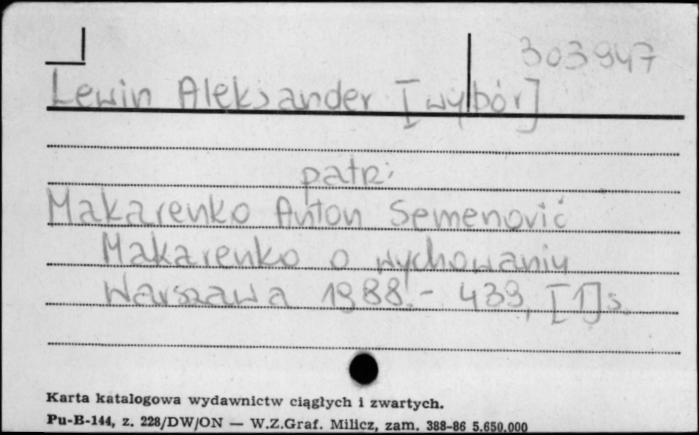 303947
Lewin Aleksander [wybór]
patrz:
Makarenko Anton Semenovič
Makarenko o wychowaniu
Warszawa 1988.- 439, [1] s.
Karta katalogowa wydawnictw ciągłych i zwartych.
Pu-B-144, z. 228/DW/ON — W.Z.Graf. Milicz, zam. 388-86 5.650.000